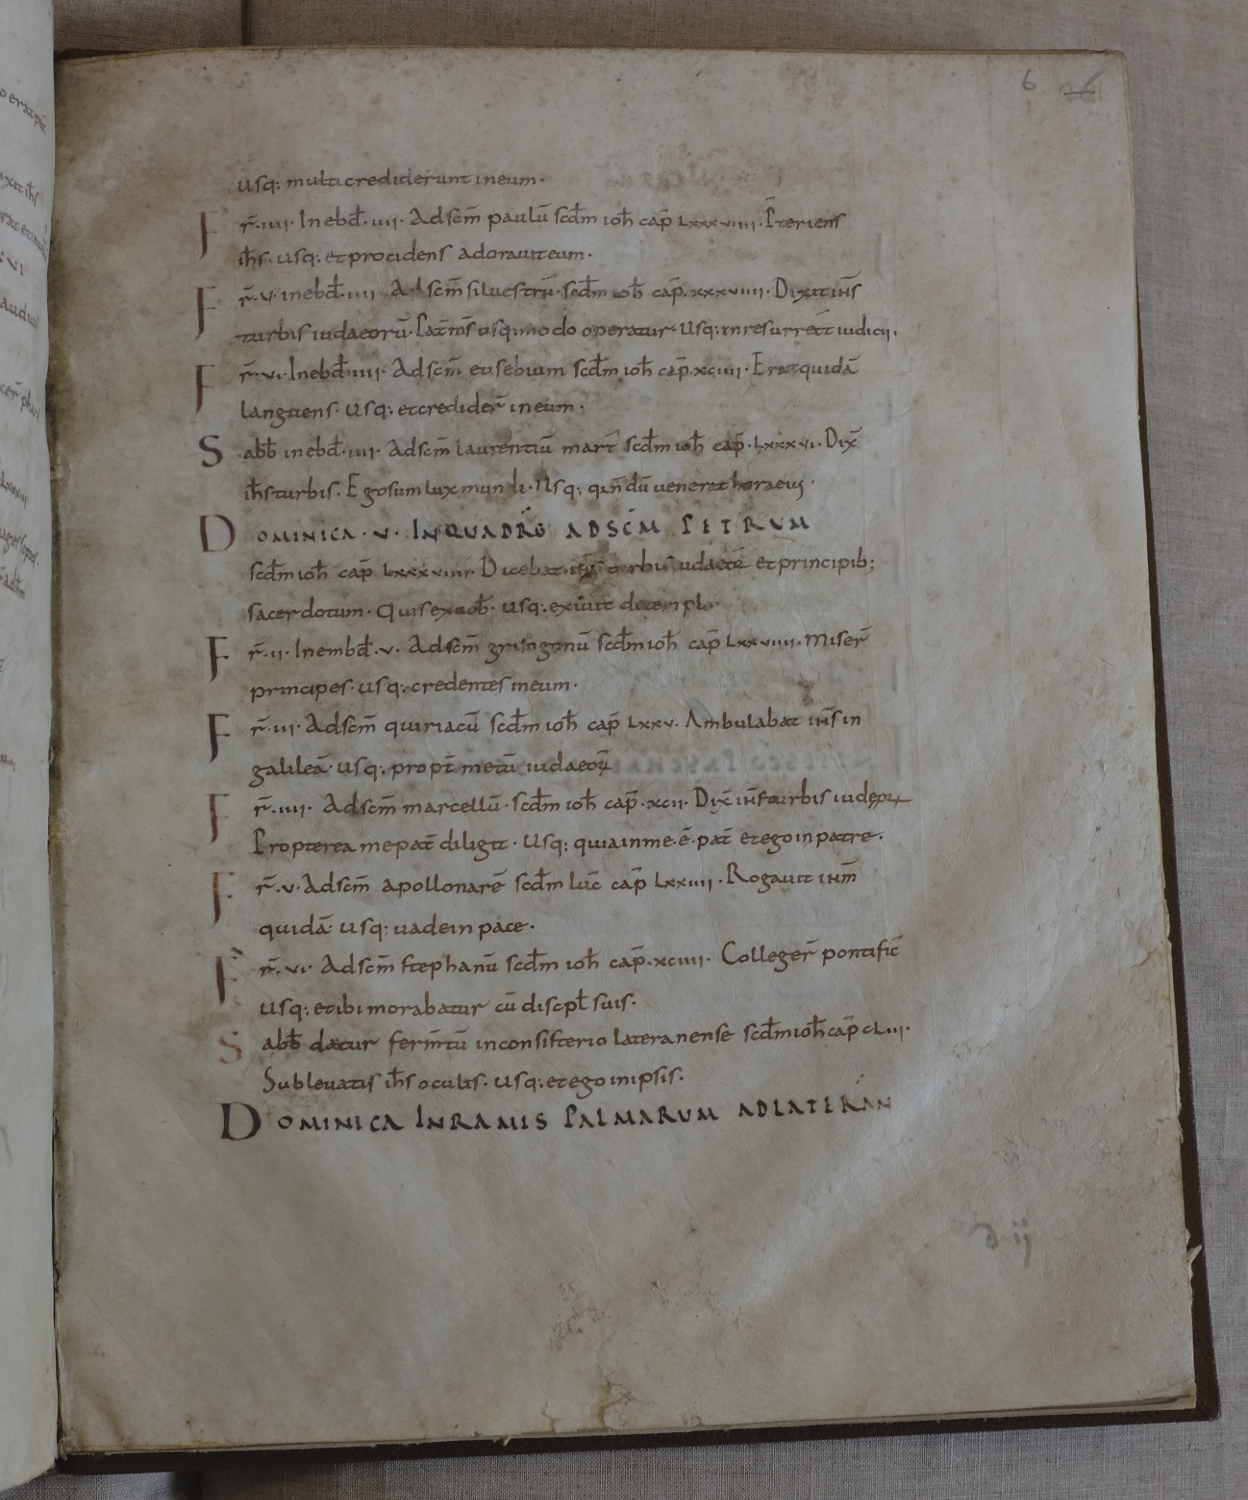 6 26
usq; multi crediderunt in eum·
Fr̄·iiii· In ebđ·iiii· Ad sc̄m paulū scđm ioh̄ cap̄ Lxxxviiii· P̄teriens
ih̄s· usq; et procidens adorauit eum·
Fr̄·v· in ebđ·iiii· Ad sc̄m siluestrū· scđm ioh̄ cap̄·xxxviiii· Dixit ih̄s
turbis iudaeorū· Pat̄ m̄s usq; modo operatur· Usq; in resurrect̄ iudicii·
Fr̄·vi· In ebđ·iiii· Ad sc̄m eusebium scđm ioh̄ cap̄·xciiii· Erat quidā
languens· usq; et credider̄ in eum·
Sabb̄ in ebđ·iiii· Ad sc̄m laurentiū mart̄ scđm ioh̄ cap̄·Lxxxvi· Dix̄
ih̄s turbis· Ego sum lux mundi· Usq; qn̄dū uenerat hora eius·
DOMINICA·V· IN QUADRG̅ AD SC̄M PETRUM
scđm ioh̄ cap̄ Lxxxviiii· Dicebat ih̄s turbis iudaeoꝝ et principib;
sacerdotum· Quis ex uob̄· usq; exiuit de templo·
Fr̄·ii· In embđ·v· Ad sc̄m grisogonū scđm ioh̄ cap̄ Lxxviiii· Miser̄
principes· usq; credentes in eum·
Fr̄·iii· Ad sc̄m quiriacū scđm ioh̄ cap̄ Lxxv· Ambulabat ih̄s in
galileā· usq; propt̄ metū iudaeoꝝ
Fr̄·iiii· Ad sc̄m marcellū· scđm ioh̄ cap̄·xcii· Dix̄ ih̄s turbis iudęoꝝ
Propterea me pat̄ diligit· Usq; quia in me·ē·pat̄ et ego in patre·
Fr̄·v· Ad sc̄m apollonarē scđm luc̄ cap̄ Lxxiiii· Rogauit ih̄m
quidā· usq; uade in pace·
Fr̄·vi· Ad sc̄m stephanū scđm ioh̄ cap̄·xciiii· Colleger̄ pontific̄
usq; et ibi morabatur cū discipł suis·
Sabb̄ datur ferm̄tū in consisterio lateranense scđm ioh̄ cap̄ cLiii·
Subleuatis ih̄s oculis· usq; et ego in ipsis·
DOMINICA IN RAMIS PALMARUM AD LATERAN̄
a ij